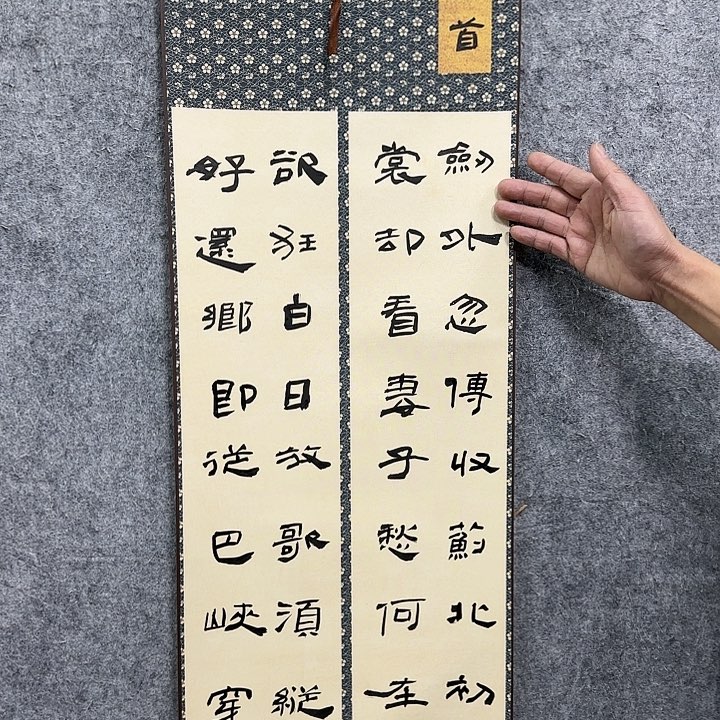 首
劍外忽傳收薊北初
裳却看妻子愁何在
欲狂白日放歌須縱
好還鄉即從巴峽穿